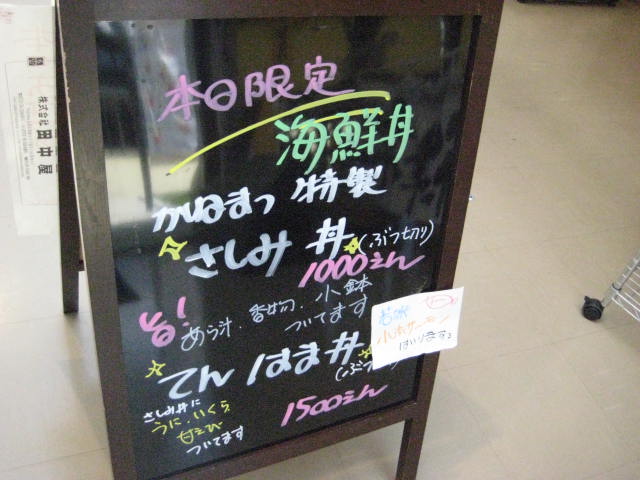 本日限定
海鮮丼
かねまつ 特製
さしみ 丼 (ぶつ切り)
1000えん
あら汁、香物、小鉢
ついてます
てん はま 丼
1500えん
さしみ丼に
うに、いくら
甘えび
ついてます
はいります
株式会社 田中屋